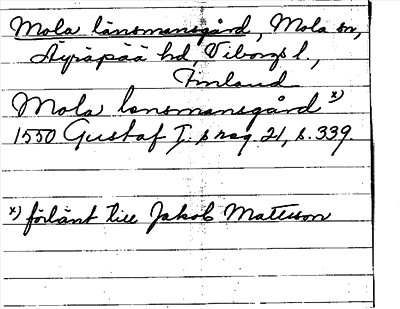 Mola länsmansgård, Mola sn,
Äyräpää hd, Viborgs l.,
Finland
Mola lensmansgård x)
1550 Gustaf I. s reg. 21, s. 339.
x) förlänt till Jakob Mattsson